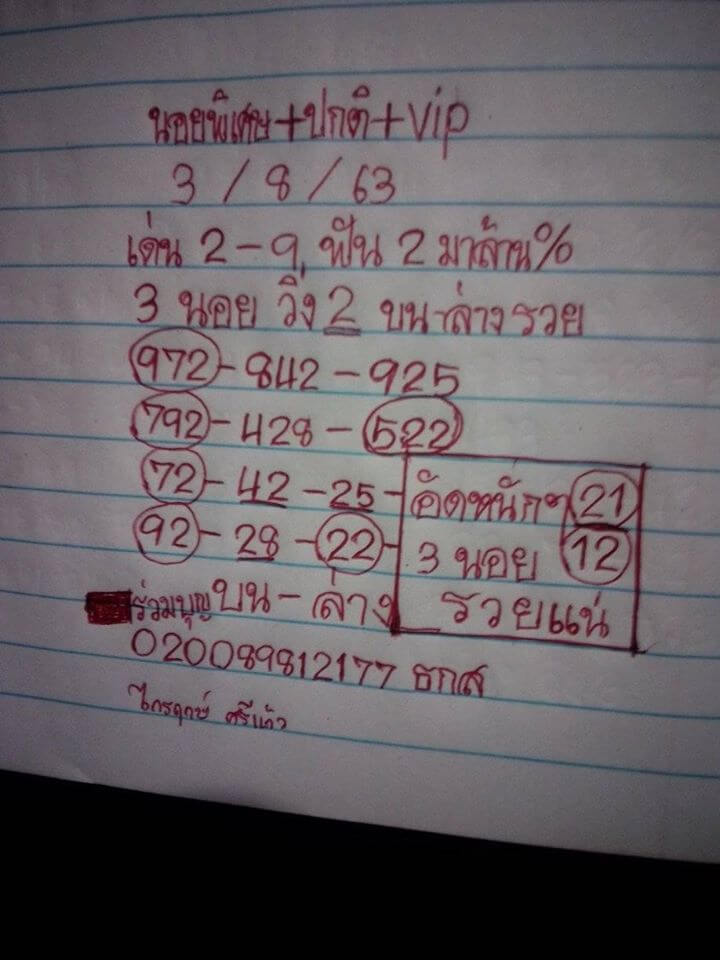 นอยพิเศษ+ปกติ+vip
3 / 8 / 63
เด่น 2-9, ฟัน 2 มาล้าน%
3 นอย วิ่ง 2 บน-ล่าง รวย
972-842-925
792-428-522
72-42-25-อัดหนักๆ 21
92-28-22-3 นอย 12
ร่วมบุญ บน-ล่าง รวยแน่
020089812177 ธกส
ไกรฤกษ์ ศรีแก้ว